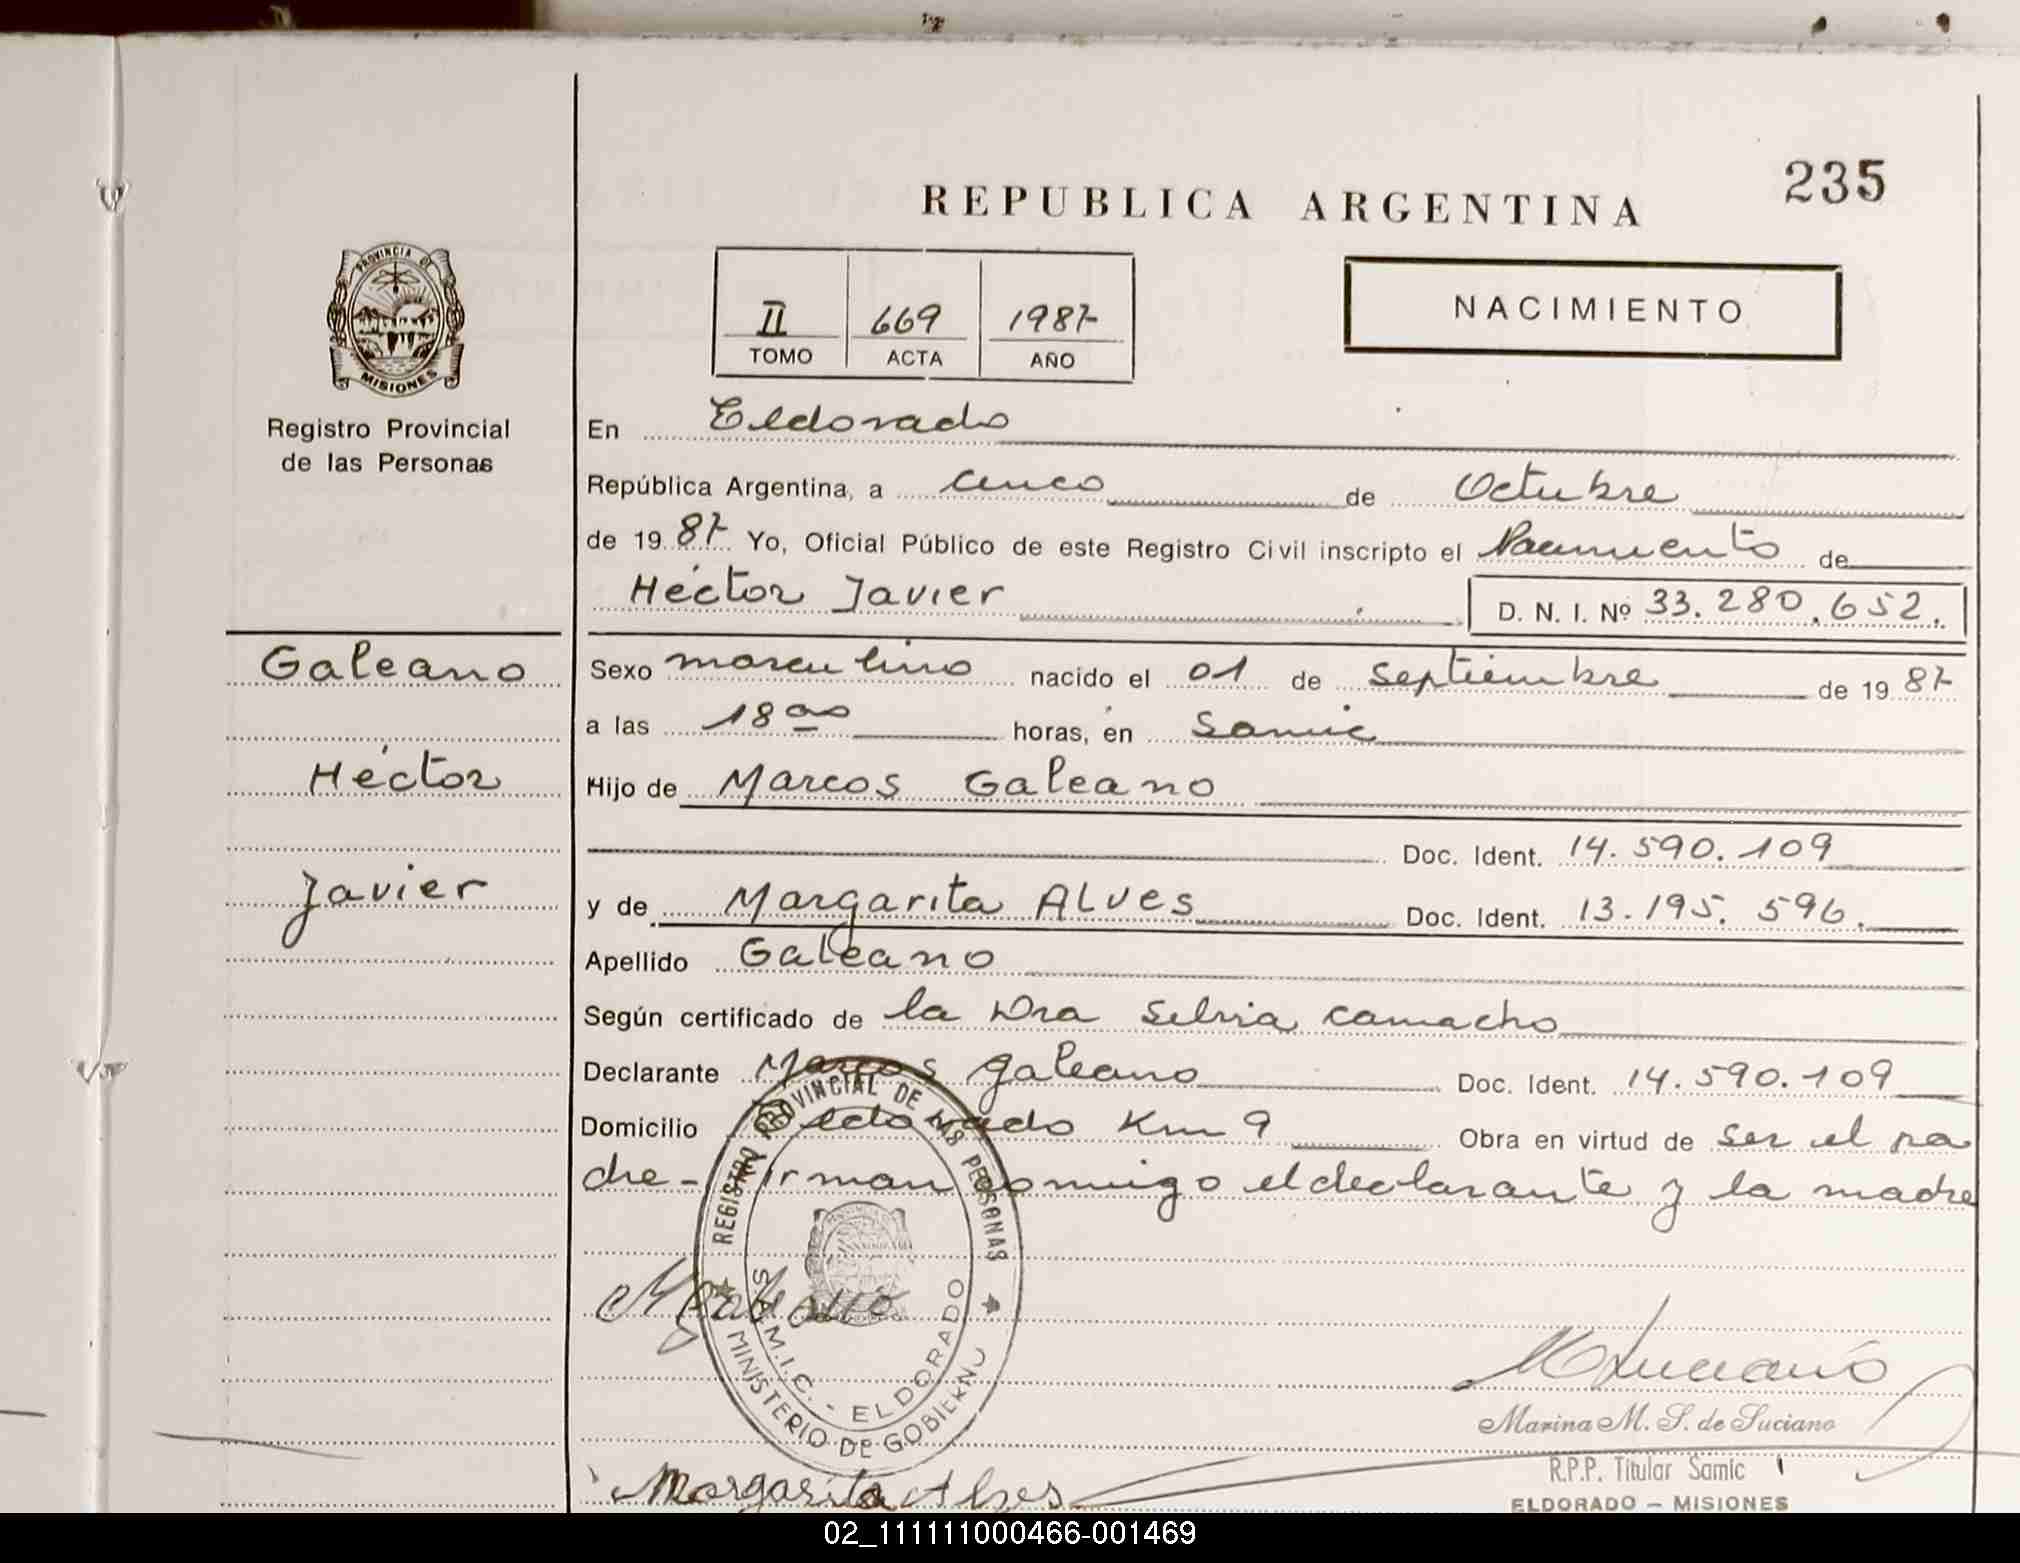 235
REPUBLICA ARGENTINA
PROVINCIA DE
MISIONES
Registro Provincial
de las Personas
II 669 1987
TOMO ACTA AÑO
NACIMIENTO
En Eldorado
República Argentina, a cinco de Octubre
de 1987 Yo, Oficial Público de este Registro Civil inscripto el Nacimiento de
Héctor Javier D. N. I. Nº 33.280.652.
Galeano
Héctor
Javier
Sexo masculino nacido el 01 de Septiembre de 1987
a las 18 00 horas, en Samic
Hijo de Marcos Galeano
Doc. Ident. 14.590.109
y de Margarita ALves Doc. Ident. 13.195.596.
Apellido Galeano
Según certificado de la Dra Silvia Camacho
Declarante Marcos Galeano Doc. Ident. 14.590.109
Domicilio Eldorado Km 9 Obra en virtud de ser el pa
dre - Firman conmigo el declarante y la madre
REGISTRO PROVINCIAL DE LAS PERSONAS
S.A.M.I.C. - ELDORADO
MINISTERIO DE GOBIERNO
MGaleano
Marina M. S. de Luciano
R.P.P. Titular Samic
ELDORADO - MISIONES
Margarita Alves
02_111111000466-001469